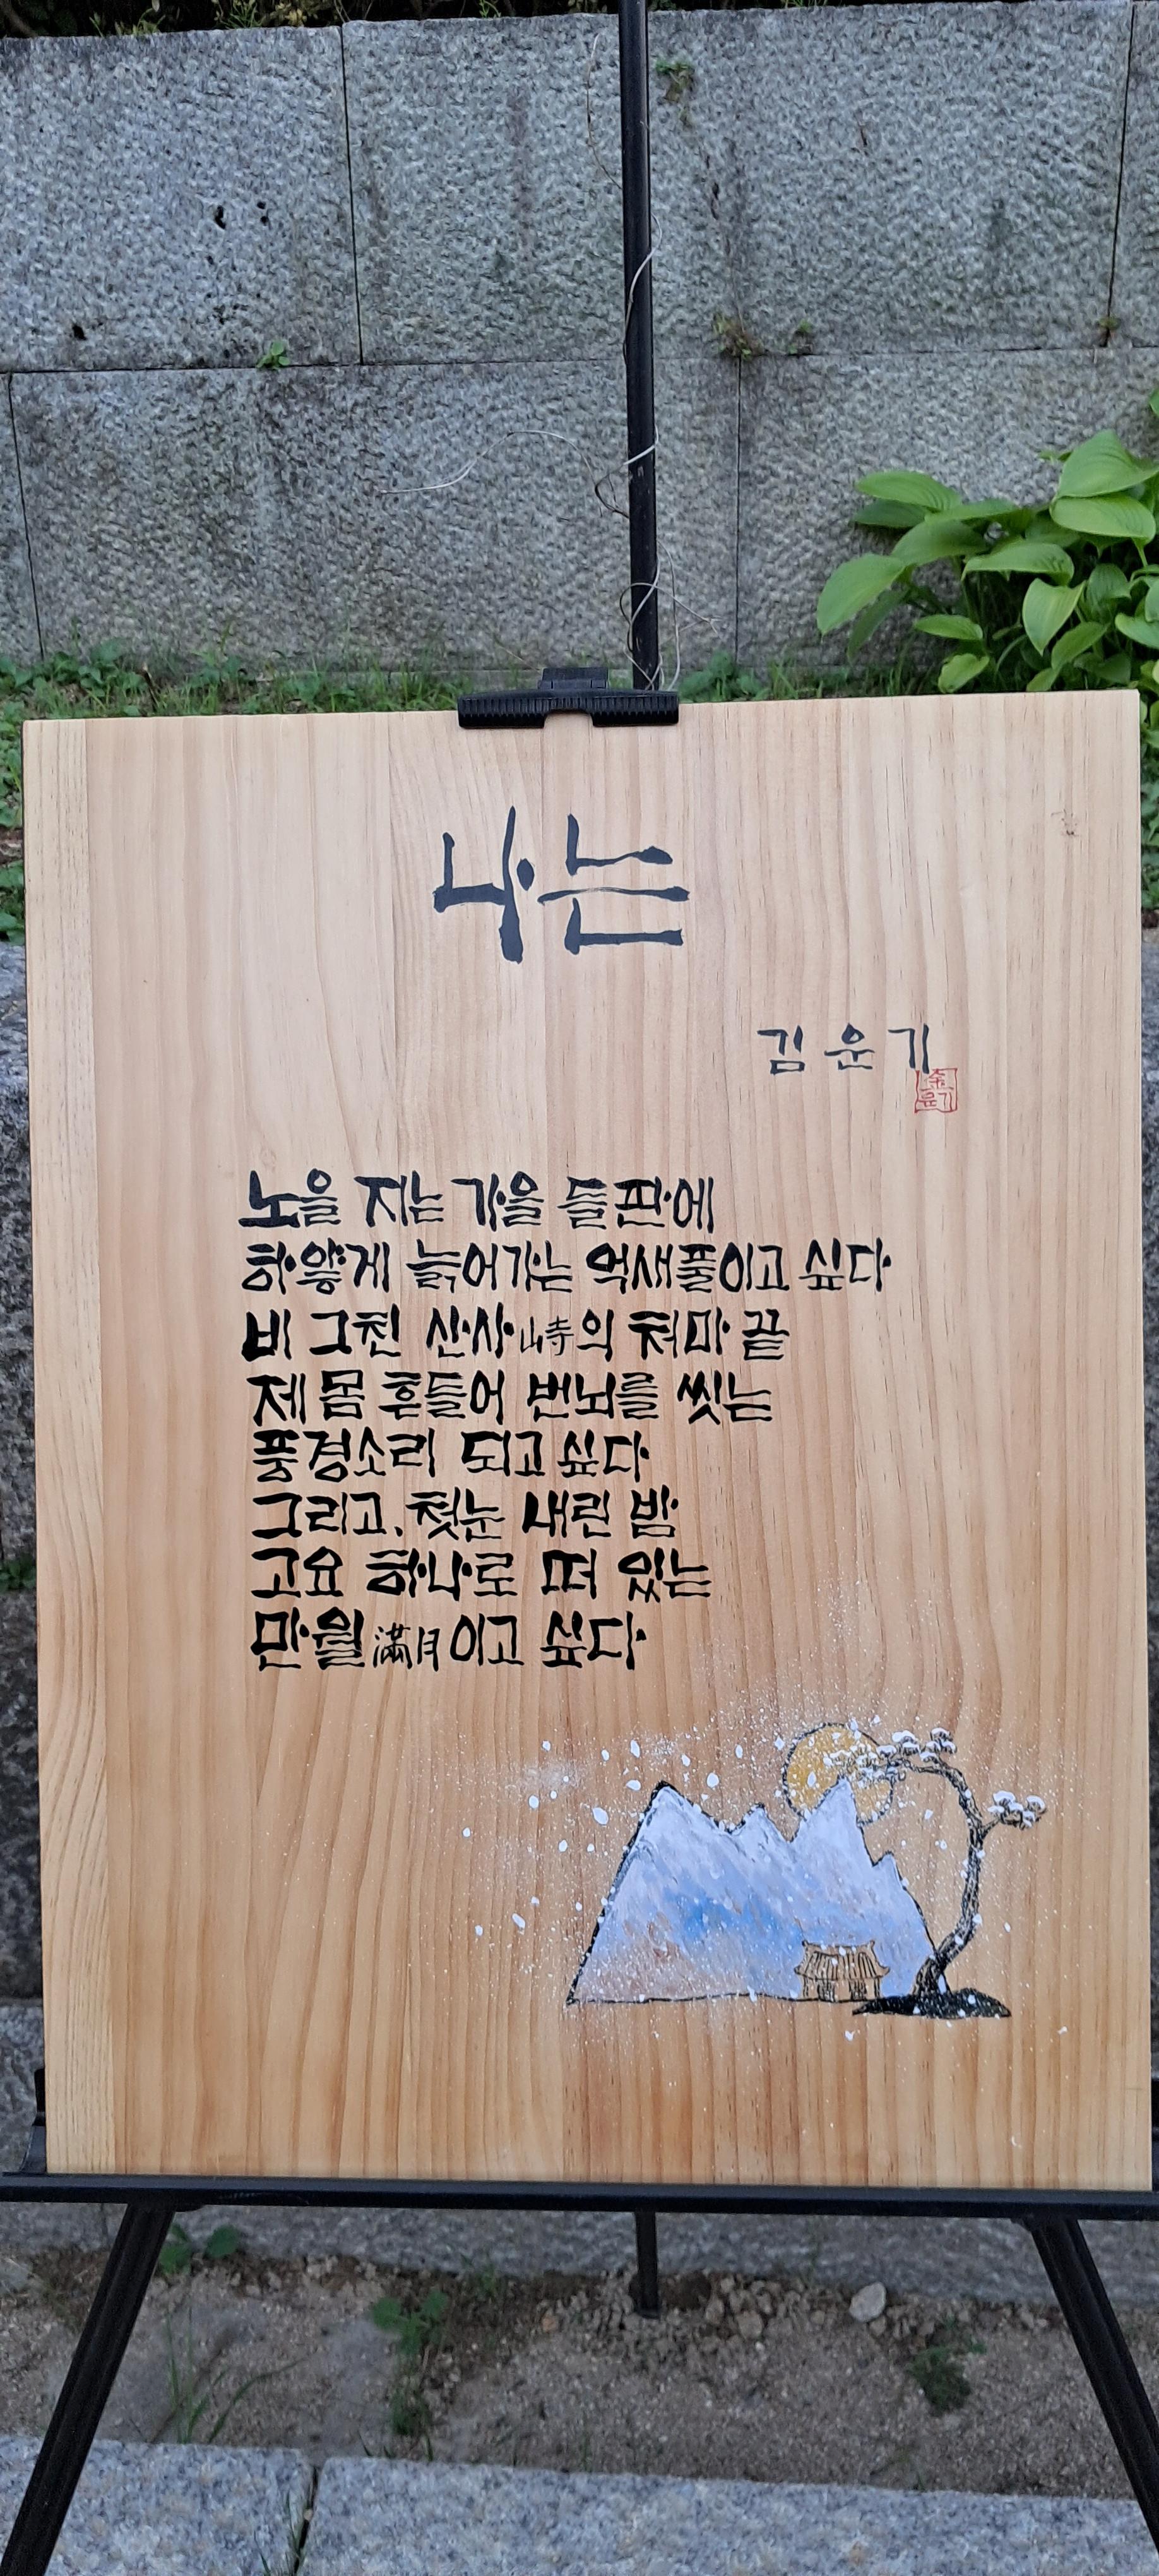 나는
김운기
노을 지는 가을 들판에
하얗게 늙어가는 억새풀이고 싶다
비 그친 산사山寺의 처마 끝
제 몸 흔들어 번뇌를 씻는
풍경소리 되고 싶다
그리고, 첫눈 내린 밤
고요 하나로 떠 있는
만월滿月이고 싶다